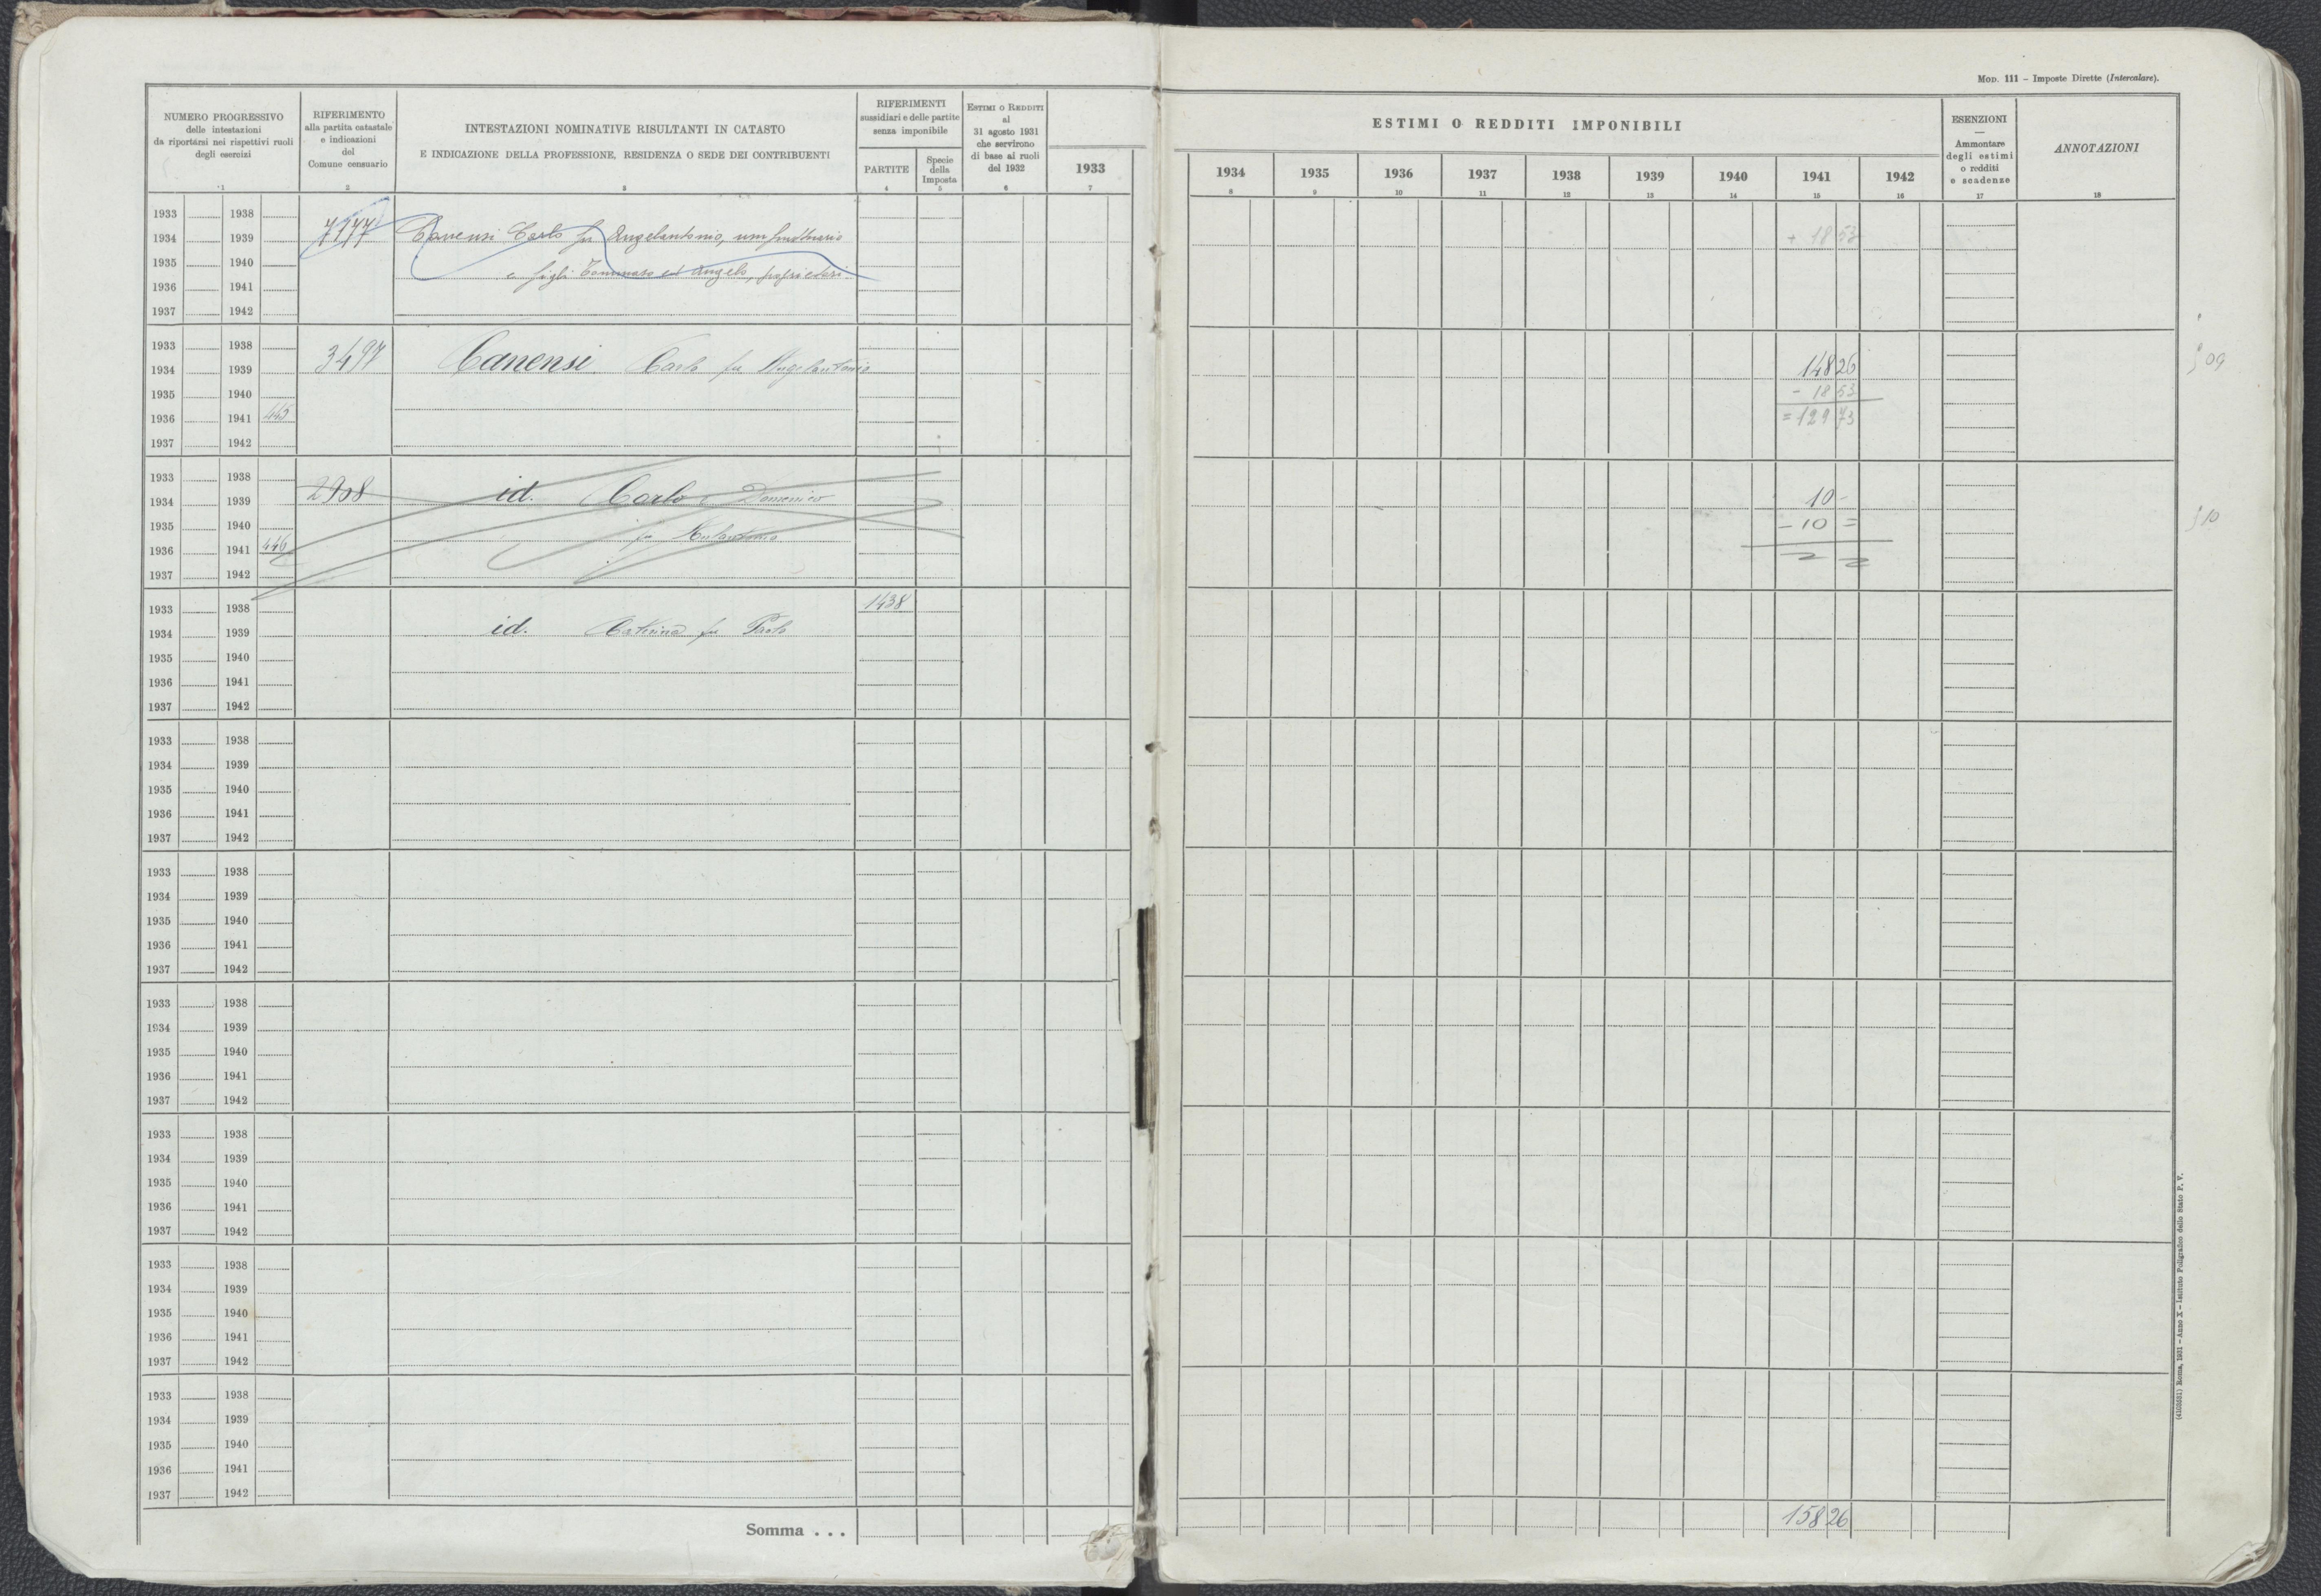 MOD. 111 – Imposte Dirette (Intercalare).
NUMERO PROGRESSIVO
delle intestazioni
da riportarsi nei rispettivi ruoli
degli esercizi
1
RIFERIMENTO
alla partita catastale
e indicazioni
del
Comune censuario
2
INTESTAZIONI NOMINATIVE RISULTANTI IN CATASTO
E INDICAZIONE DELLA PROFESSIONE, RESIDENZA O SEDE DEI CONTRIBUENTI
3
RIFERIMENTI
sussidiari e delle partite
senza imponibile
PARTITE
4
Specie
della
Imposta
5
ESTIMI O REDDITI
al
31 agosto 1931
che servirono
di base ai ruoli
del 1932
6
1933
7
ESTIMI O REDDITI IMPONIBILI
1934 1935 1936 1937 1938 1939 1940 1941 1942
8 9 10 11 12 13 14 15 16
ESENZIONI
—
Ammontare
degli estimi
o redditi
e scadenze
17
ANNOTAZIONI
18
1933 1938
1934 1939 7177 Canensi Carlo fu Angelantonio, usufruttuario + 18 53
1935 1940 e figli Tommaso ed Angelo, proprietari
1936 1941
1937 1942
1933 1938
1934 1939 3497 Canensi Carlo fu Angelantonio 148 26 09
1935 1940 - 18 53
1936 1941 445 = 129 73
1937 1942
1933 1938
1934 1939 2908 id. Carlo e Domenico 10 -
1935 1940 fu - 10 = 10
1936 1941 446
1937 1942
1933 1938 1438
1934 1939 id. Caterina fu Paolo
1935 1940
1936 1941
1937 1942
1933 1938
1934 1939
1935 1940
1936 1941
1937 1942
1933 1938
1934 1939
1935 1940
1936 1941
1937 1942
1933 1938
1934 1939
1935 1940
1936 1941
1937 1942
1933 1938
1934 1939
1935 1940
1936 1941
1937 1942
1933 1938
1934 1939
1935 1940
1936 1941
1937 1942
1933 1938
1934 1939
1935 1940
1936 1941
1937 1942
Somma . . . 158 26
(4103551) Roma, 1931 – Anno X – Istituto Poligrafico dello Stato P. V.